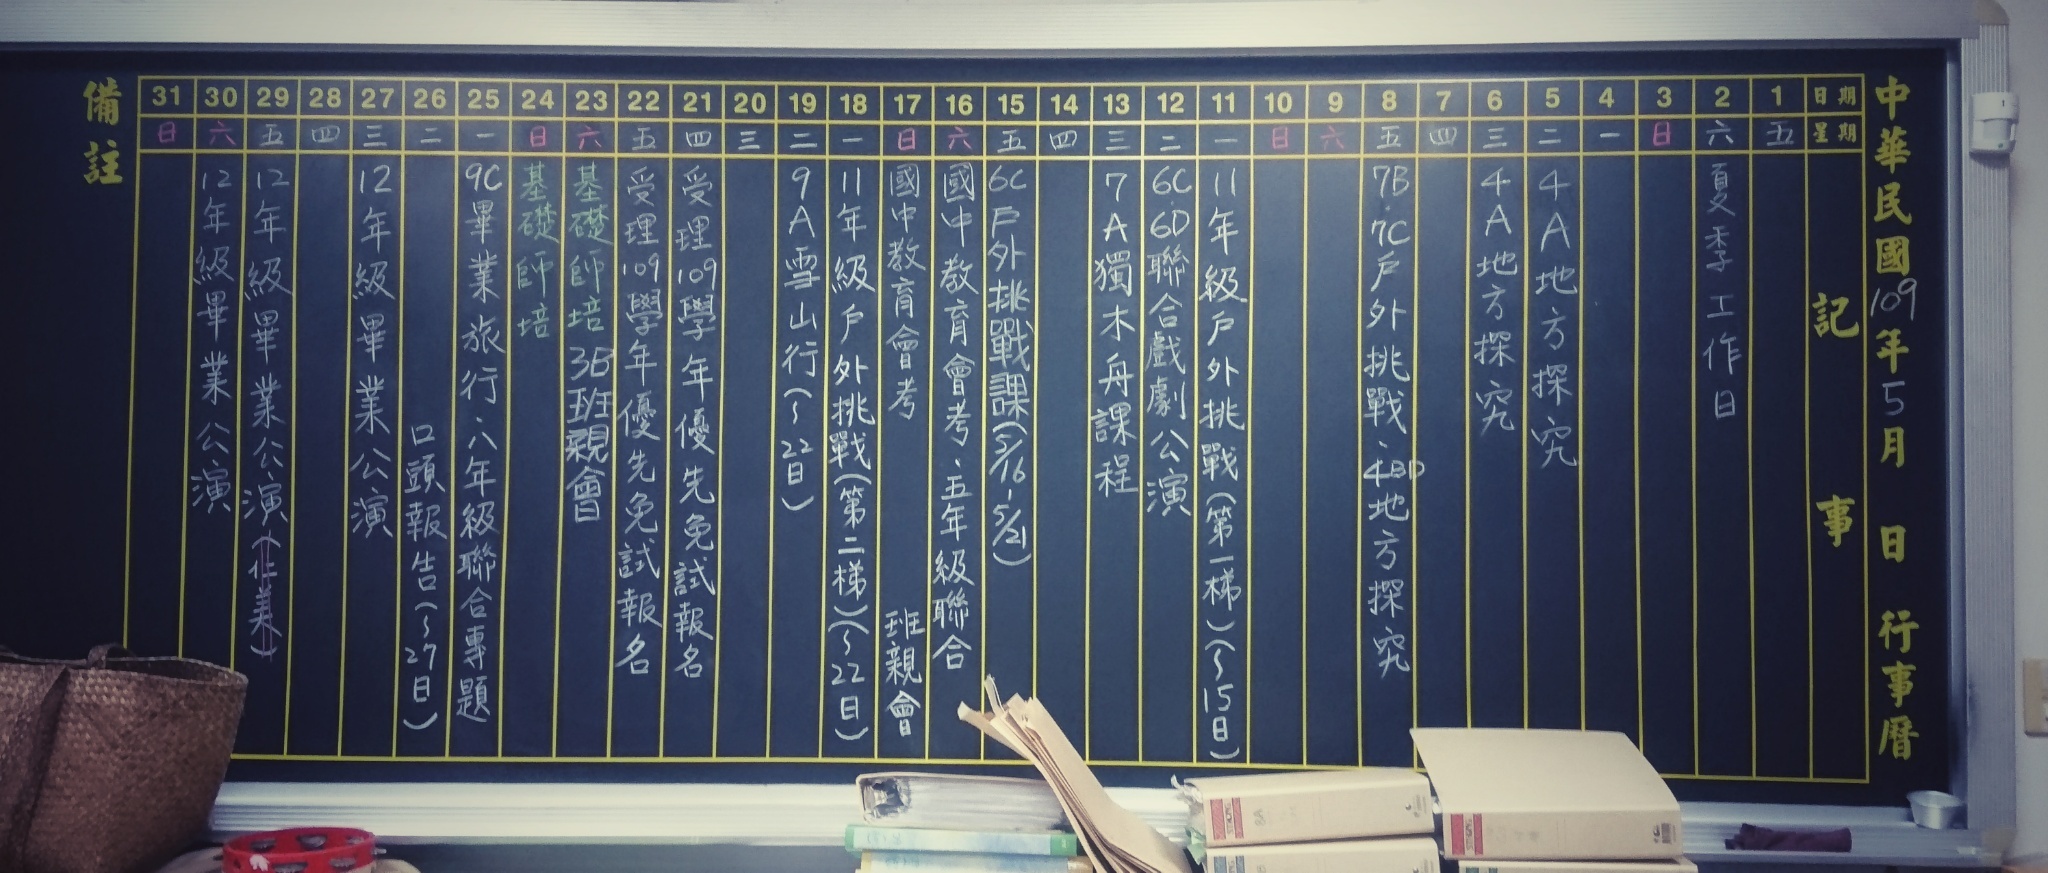 中華民國109年5月 日 行事曆
日期 星期 記事
1 五
2 六 夏季工作日
3 日
4 一
5 二 4A地方探究
6 三 4A地方探究
7 四
8 五 7B.7C戶外挑戰.4BD地方探究
9 六
10 日
11 一 11年級戶外挑戰(第一梯)(~15日)
12 二 6C.6D聯合戲劇公演
13 三 7A獨木舟課程
14 四
15 五 6C戶外挑戰課(5/16-5/21)
16 六 國中教育會考.五年級聯合
17 日 國中教育會考 班親會
18 一 11年級戶外挑戰(第二梯)(~22日)
19 二 9A雪山行(~22日)
20 三
21 四 受理109學年優先免試報名
22 五 受理109學年優先免試報名
23 六 基礎師培 3B班親會
24 日 基礎師培
25 一 9C畢業旅行.八年級聯合專題
26 二 口頭報告(~27日)
27 三 12年級畢業公演
28 四
29 五 12年級畢業公演(作美)
30 六 12年級畢業公演
31 日
備註